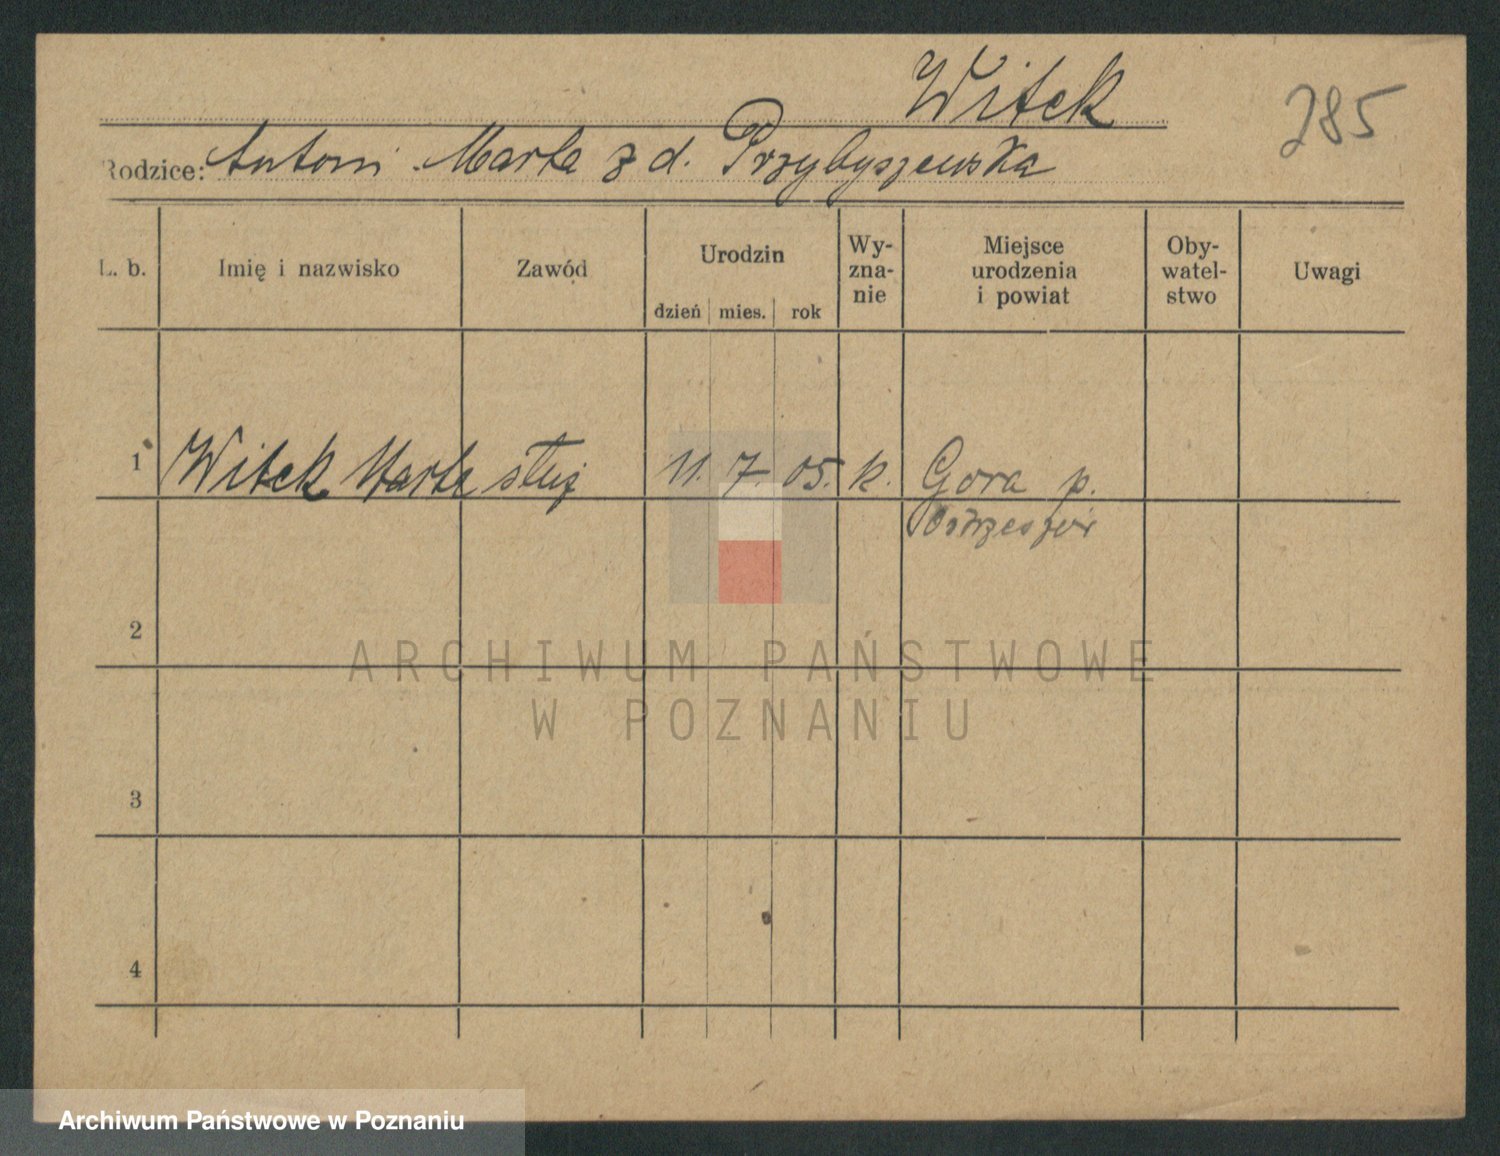 Witek
285
Rodzice: Antoni Marta z d. Przybyszewska
L. b. Imię i nazwisko Zawód Urodzin dzień mies. rok Wy-zna-nie Miejsce urodzenia i powiat Oby-watel-stwo Uwagi
1 Witek Marta służ 11. 7. 05. k. Gora p.
Ostrzeszów
2
ARCHIWUM PAŃSTWOWE
W POZNANIU
3
4
Archiwum Państwowe w Poznaniu